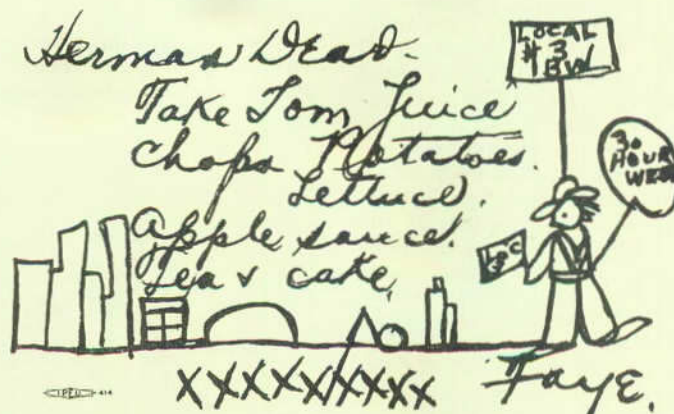 Herman Dead.
Take Tom Juice
Chops Potatoes.
Lettuce.
Apple sauce.
Tea & cake.
LOCAL
# 3
BW
30
HOUR
WEEK
LOC
3
XXXXXXXXX
Faye.
IPEU 414